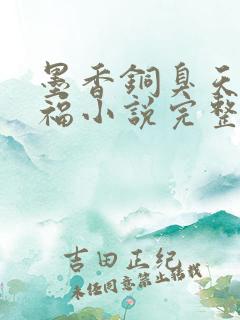 墨香銅臭天
福小說完整
吉田正紀
未经同意禁止转载